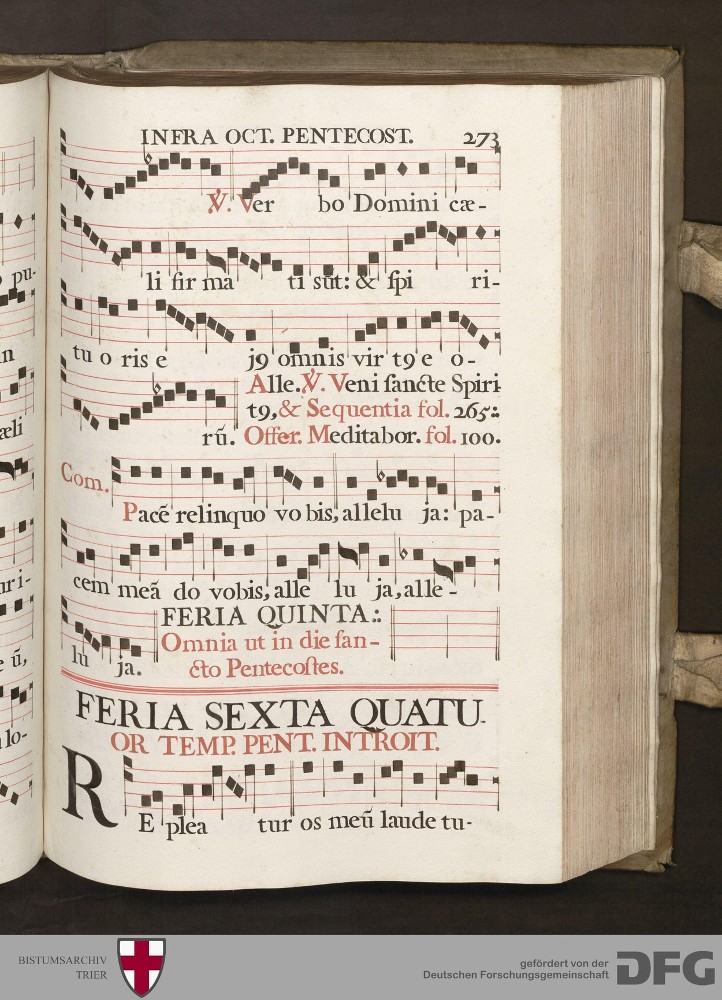 INFRA OCT. PENTECOST. 273
℣. Ver bo Domini cæ-
li fir ma ti sūt: & spi ri-
tu o ris e j9 omnis vir t9 e o-
Alle. ℣. Veni sancte Spiri
t9, & Sequentia fol. 265:
rū. Offer. Meditabor. fol. 100.
Com.
Pacē relinquo vo bis, allelu ja: pa-
cem meā do vobis, alle lu ja, alle-
FERIA QUINTA:
lu ja. Omnia ut in die san-
cto Pentecostes.
FERIA SEXTA QUATU-
OR TEMP. PENT. INTROIT.
RE plea tur os meū laude tu-
pu-
n
æli
uri-
e ū,
lo-
BISTUMSARCHIV
TRIER
gefördert von der
Deutschen Forschungsgemeinschaft
DFG